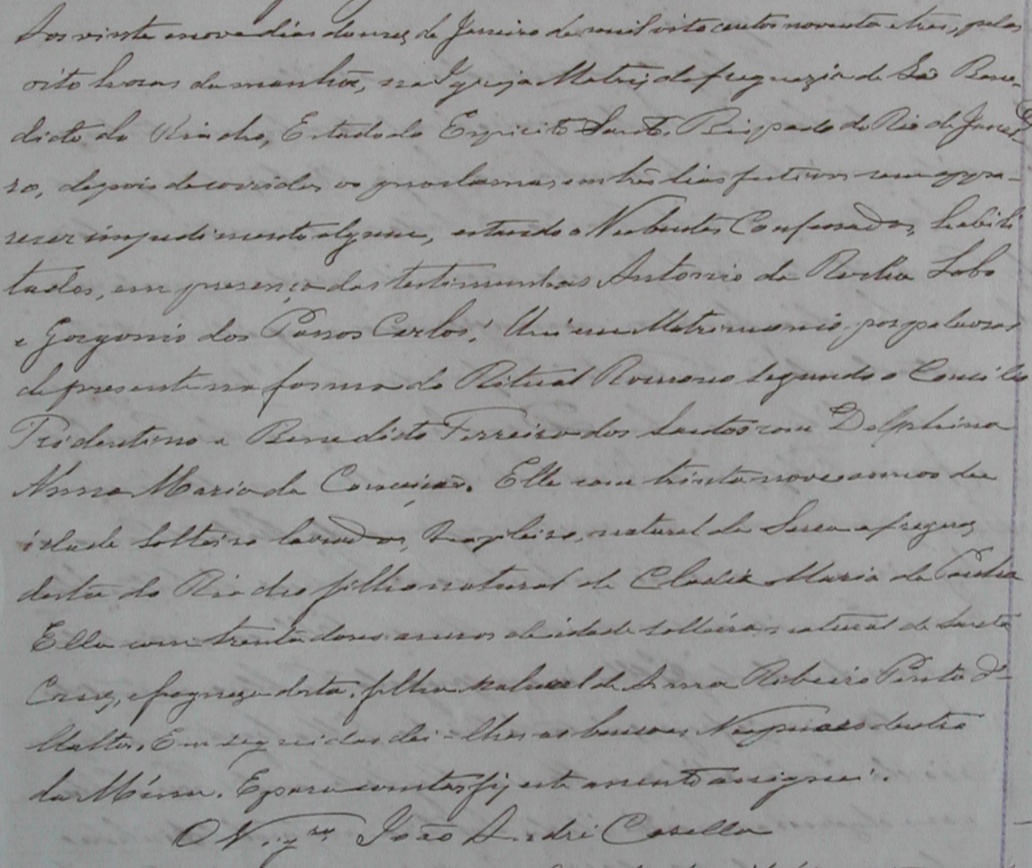 Aos vinte e nove dias do mez de Janeiro de mil oito centos noventa e tres, pelas
oito horas da manhã, na Igreja Matriz da freguezia de São Bene-
dicto do Riacho, Estado do Espirito Santo, Bispado do Rio de Janei-
ro, depois de corridos os proclamas em três dias festivos sem appa-
recer impedimento algum, estando os Nubentes Confessados, habili-
tados, em presença das testimunhas Antonio da Rocha Lobo
e Gorgonio dos Passos Carlos, Uni em Matrimonio por palavras
de presente na forma do Ritual Romano segundo o Concilio
Tridentino a Benedicto Ferreira dos Santos com Delphina
Anna Maria da Conceição. Elle com trinta nove annos de
idade solteiro lavrador, Brazileiro, natural da Serra e freguez
desta do Riacho filho natural de Maria da Penha
Ella com trinta annos de idade solteira natural de Santa
Cruz, e fregueza desta, filha natural de Anna Ribeiro Pinto d
Em seguida dei-lhes as bençãos Nupciaes dentro
da Missa. E para constar fiz este assento e assignei.
O Vigro João André Casella